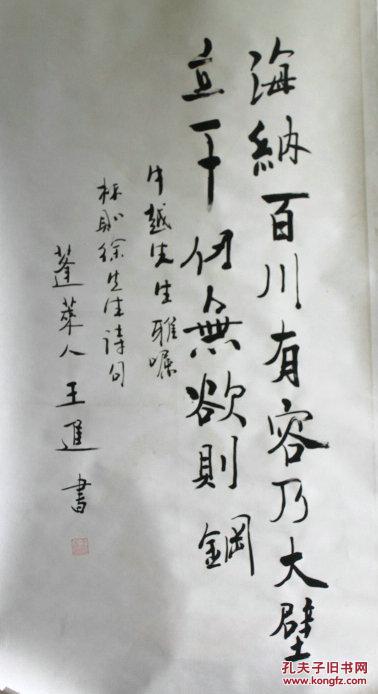 海納百川有容乃大壁
立一千仞無欲則鋼
牛越先生雅囑
林則徐先生詩句
蓬萊人王進書
孔夫子旧书网
www.kongfz.com